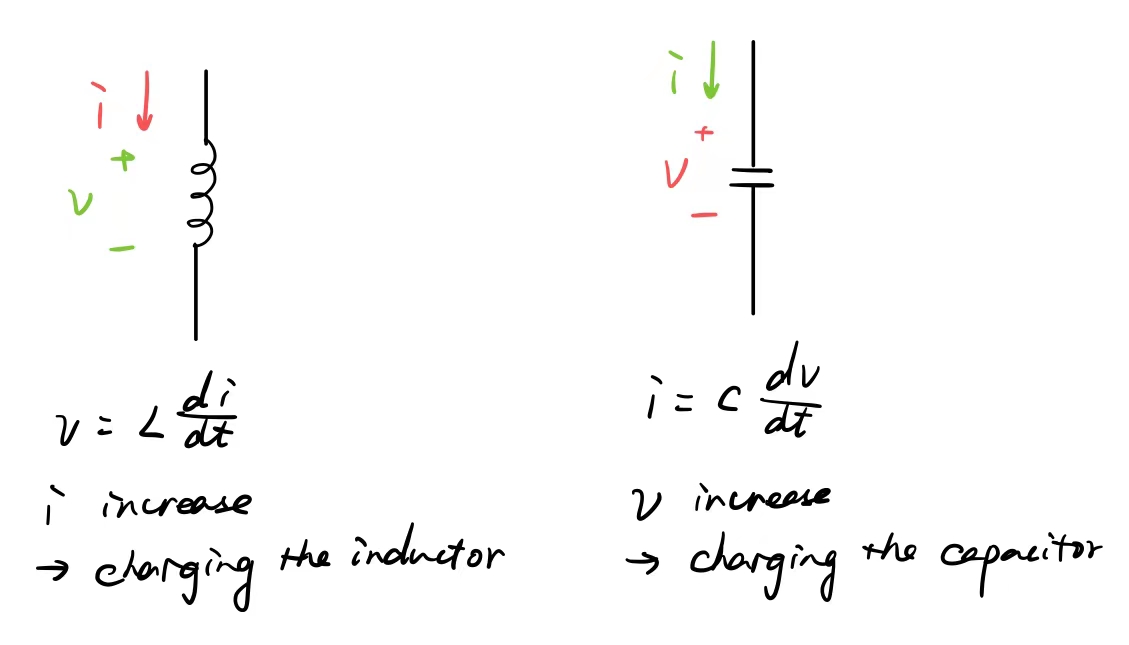 i
+
v
−
v = L di/dt
i increase
→ charging the inductor
i
+
v
−
i = C dv/dt
v increase
→ charging the capacitor